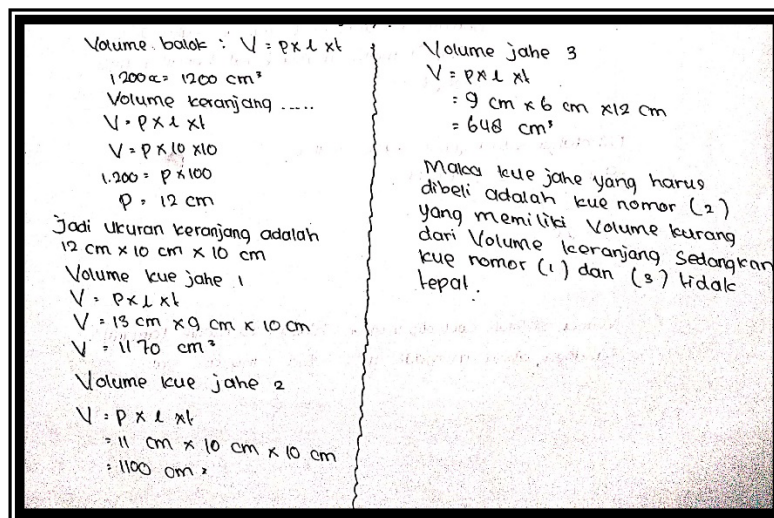 Volume balok : V = p x l x t
1200 cc = 1200 cm³
Volume keranjang .....
V = p x l x t
V = p x 10 x 10
1.200 = p x 100
p = 12 cm
Jadi ukuran keranjang adalah
12 cm x 10 cm x 10 cm
Volume kue jahe 1
V = p x l x t
V = 13 cm x 9 cm x 10 cm
V = 1170 cm³
Volume kue jahe 2
V = p x l x t
= 11 cm x 10 cm x 10 cm
= 1100 cm³
Volume jahe 3
V = p x l x t
= 9 cm x 6 cm x 12 cm
= 648 cm³
Maka kue jahe yang harus
dibeli adalah kue nomor (2)
yang memiliki Volume kurang
dari Volume keranjang sedangkan
kue nomor (1) dan (3) tidak
tepat.